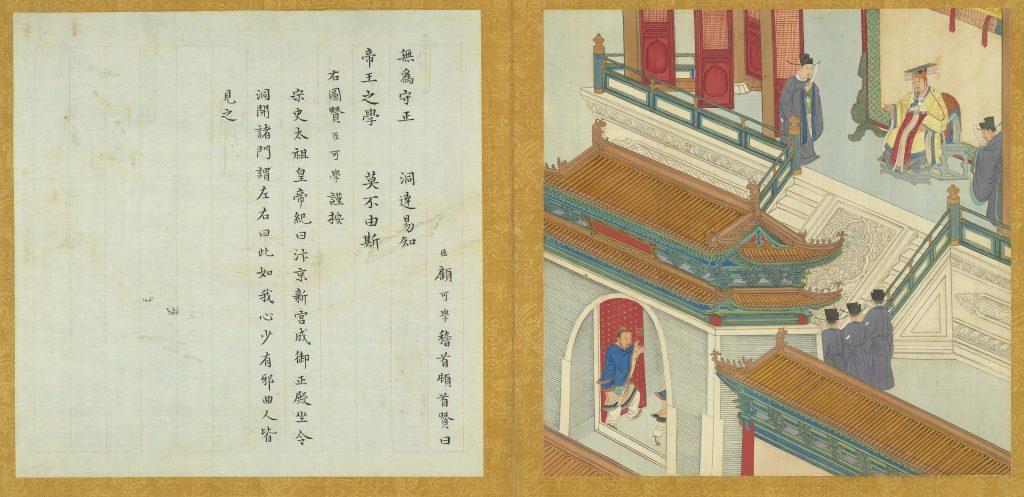 臣顧可學稽首頓首贊曰
無爲守正　洞達易知
帝王之學　莫不由斯
右圖贊臣可學謹按
宋史太祖皇帝紀曰汴京新宮成御正殿坐令
洞開諸門謂左右曰此如我心少有邪曲人皆
見之